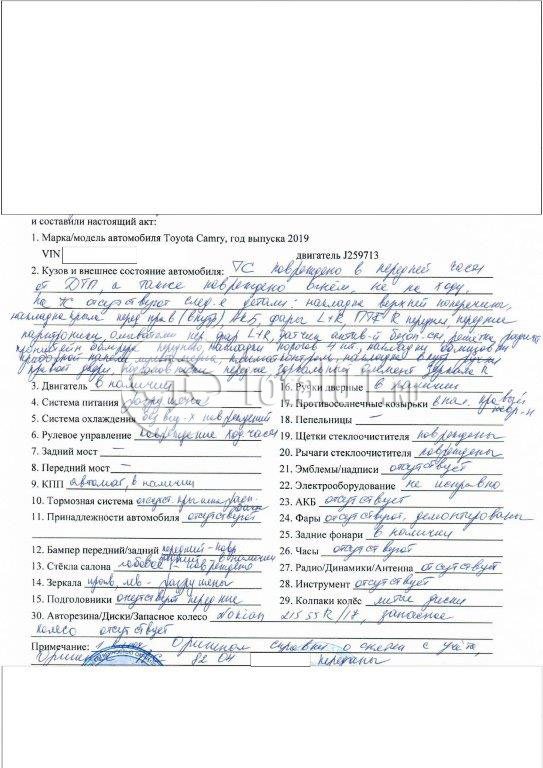 и составили настоящий акт:
1. Марка/модель автомобиля Toyota Camry, год выпуска 2019
VIN двигатель J259713
2. Кузов и внешнее состояние автомобиля: ТС повреждено в передней части
от ДТП, а также повреждено огнем, не на ходу,
На ТС отсутствуют след-е детали: накладка верхней поперечины,
накладка крыла перед прав (внутр), АКБ, фары L+R ПТФ R передние
парктроники омыватели пер фар L+R, датчик решетка
бампера накладки порогов 4 шт, накладки
панели климатконтроль, накладка ручки
правой двери, передние зеркальный элемент зеркала R
3. Двигатель в наличии
16. Ручки дверные в наличии
4. Система питания разрушена
17. Противосолнечные козырьки в нал. правый
5. Система охлаждения без повреждений
18. Пепельницы —
6. Рулевое управление
19. Щетки стеклоочистителя повреждены
7. Задний мост —
20. Рычаги стеклоочистителя повреждены
8. Передний мост —
21. Эмблемы/надписи отсутствует
9. КПП автомат, в наличии
22. Электрооборудование не исправно
10. Тормозная система отсутст. крышка
23. АКБ отсутствует
11. Принадлежности автомобиля отсутствуют
24. Фары отсутствуют, демонтированы
25. Задние фонари в наличии
12. Бампер передний/задний передний - повр
задний в наличии
26. Часы отсутствуют
13. Стёкла салона лобовое - повреждено
27. Радио/Динамики/Антенна отсутствует
14. Зеркала прав, лев - разрушены
28. Инструмент отсутствует
15. Подголовники отсутствуют передние
29. Колпаки колёс литые диски
30. Авторезина/Диски/Запасное колесо Nokian 215 55 R/17, запасное
колесо отсутствует
Примечание: 1 ключ, Оригинал справки о снятии с учета,
Оригинал ПТС 82 ОН переданы